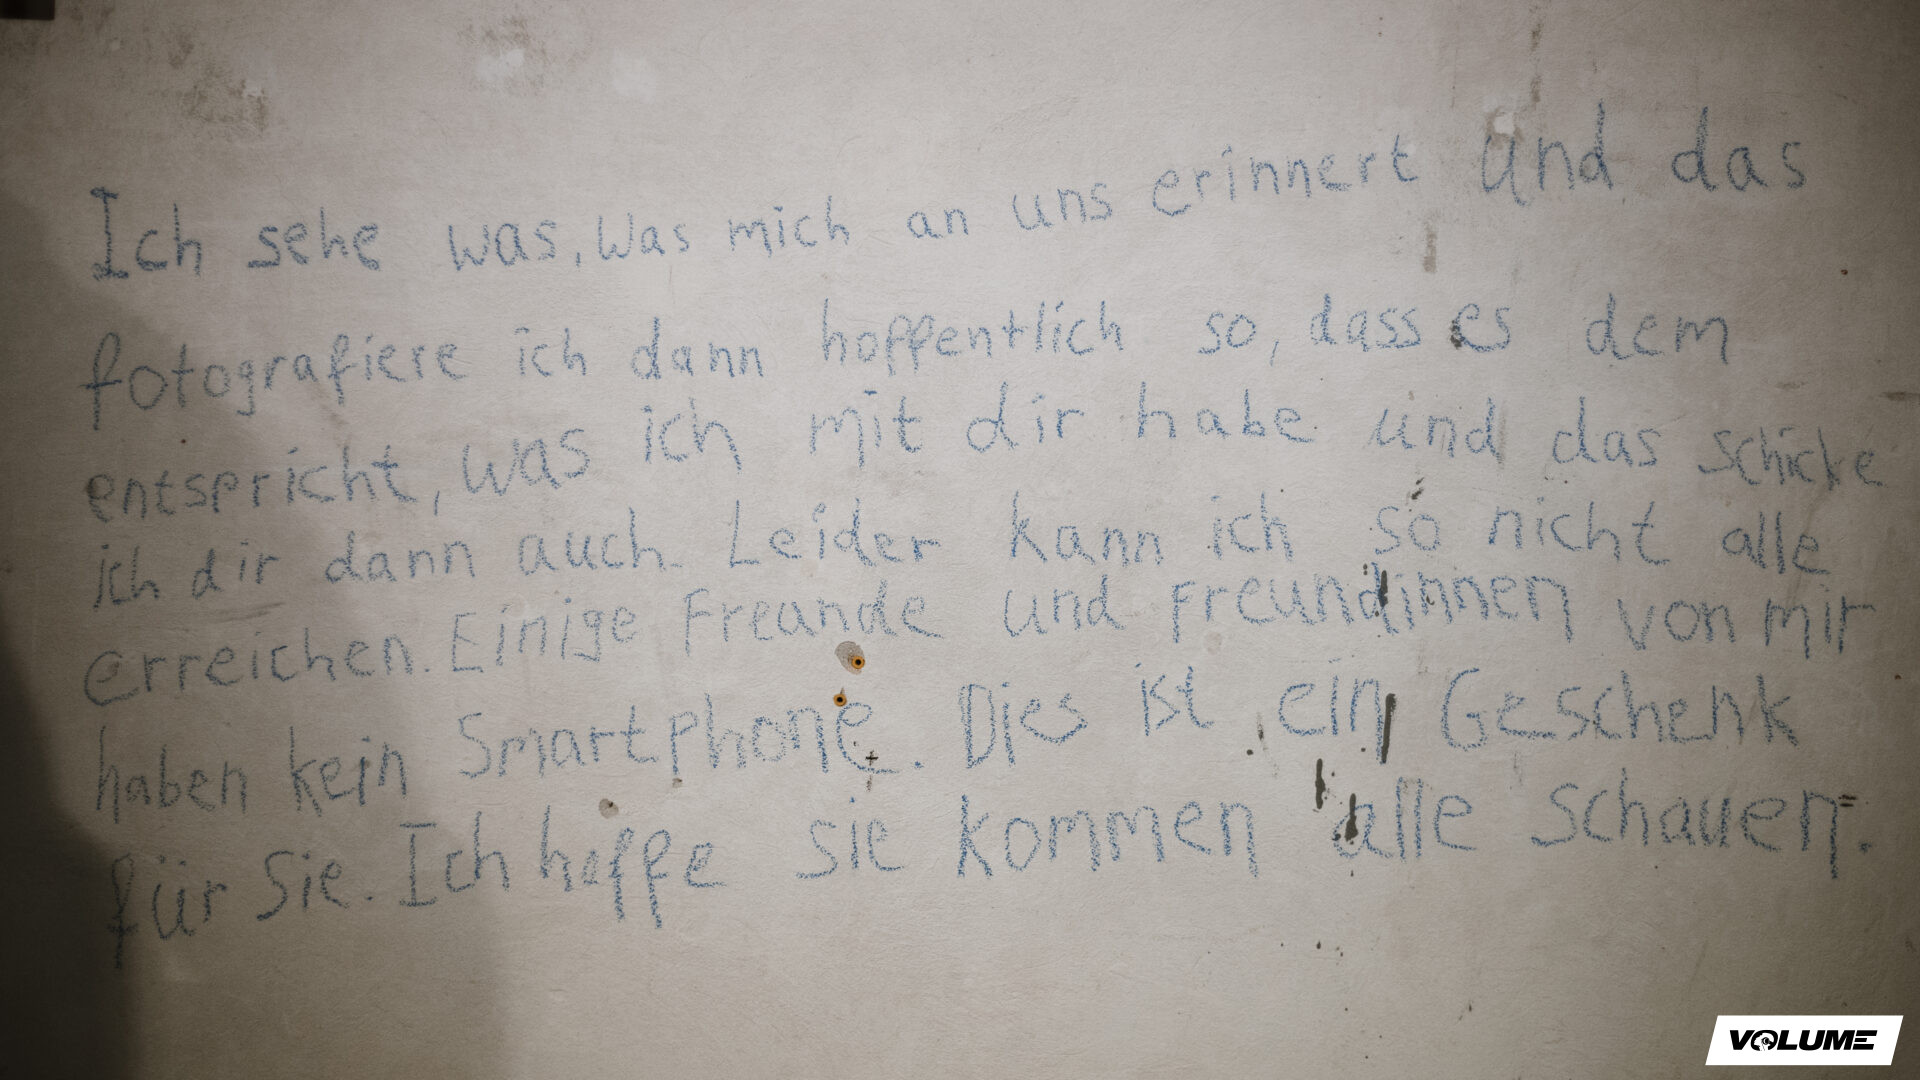 Ich sehe was, was mich an uns erinnert und das
fotografiere ich dann hoffentlich so, dass es dem
entspricht, was ich mit dir habe und das schicke
ich dir dann auch. Leider kann ich so nicht alle
erreichen. Einige Freunde und Freundinnen von mir
haben kein Smartphone. Dies ist ein Geschenk
für Sie. Ich hoffe sie kommen alle schauen.
VOLUME